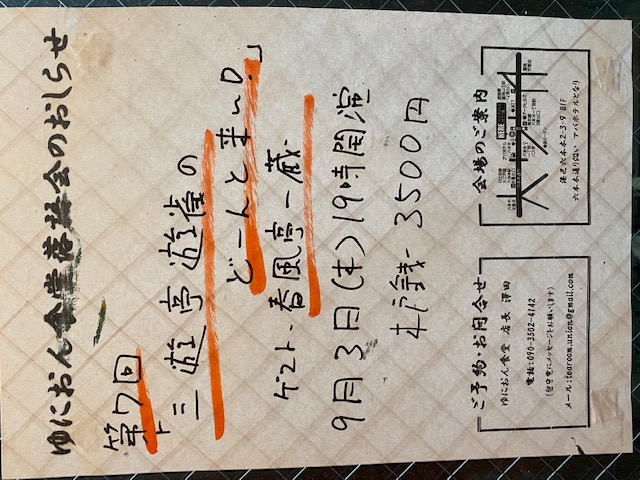 ゆにおん食堂落語会のおしらせ
第7回
「三遊亭遊雀の
どーんと来い!」
ゲスト・春風亭一蔵
9月3日(木)19時開演
木戸銭 3500円
ご予約・お問合せ
ゆにおん食堂 店長 澤田
電話:090-3502-4142
(留守電にメッセージをお願いします)
メール:tearoom.union@gmail.com
会場のご案内
HERE
六本木通り
港区六本木2-3-9 B1F
六本木通り沿い アパホテルとなり